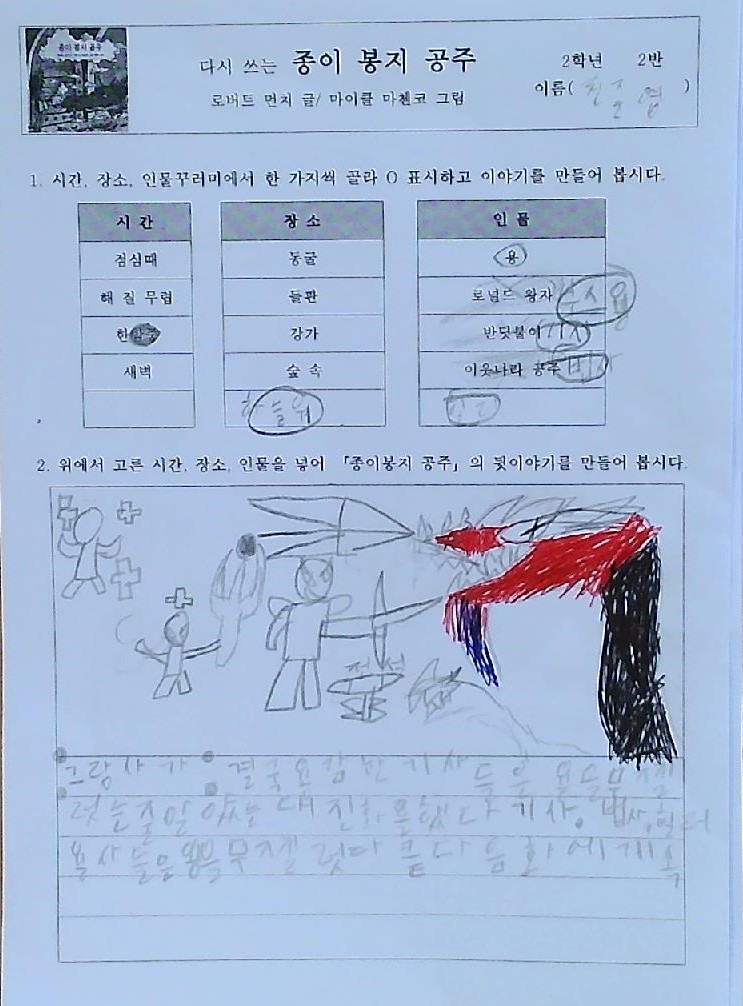 종이 봉지 공주
다시 쓰는 종이 봉지 공주
2학년 2반
로버트 먼치 글/ 마이클 마첸코 그림
이름( )
1. 시간, 장소, 인물꾸러미에서 한 가지씩 골라 O 표시하고 이야기를 만들어 봅시다.
시 간 장 소 인 물
점심때 동굴 용
해 질 무렵 들판 로널드 왕자
한밤중 강가 반딧불이 기사
새벽 숲 속 이웃나라 공주 법사
하늘위
2. 위에서 고른 시간, 장소, 인물을 넣어 「종이봉지 공주」의 뒷이야기를 만들어 봅시다.
전설
결국 용감한 기사들은 용들무찔
럿는줄알 았는대 진화를했다 기사, 법사, 힐러
용사들은 용을무찌렀다 끝 다음화에계속